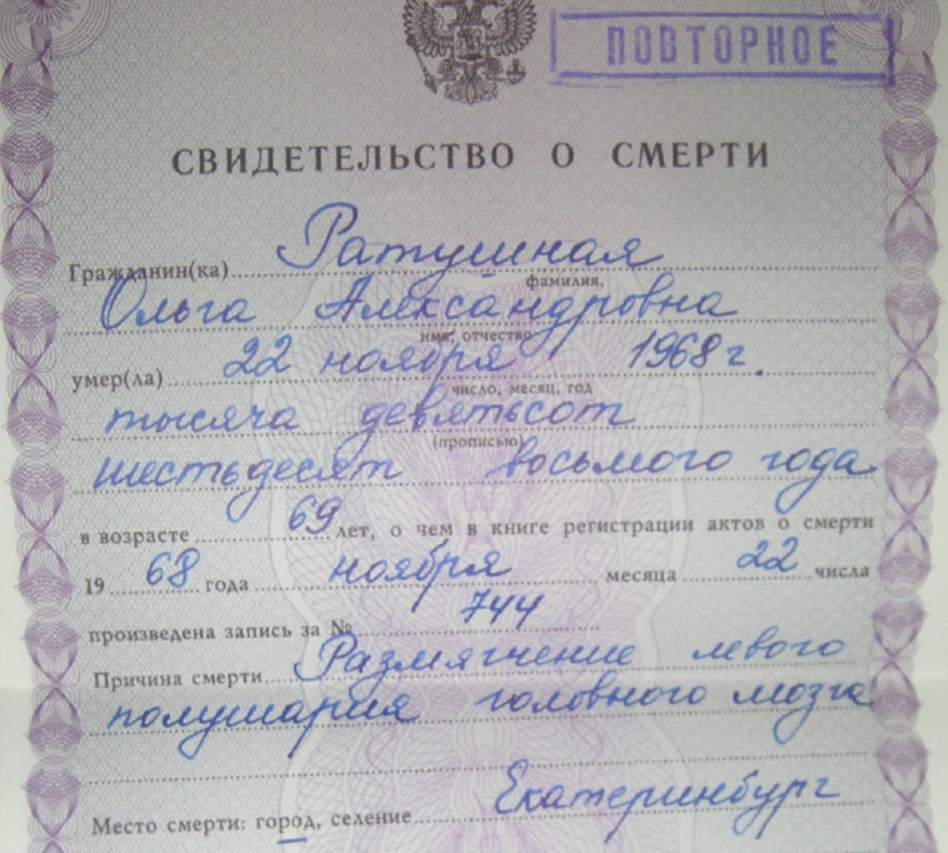 ПОВТОРНОЕ
СВИДЕТЕЛЬСТВО О СМЕРТИ
Гражданин(ка) Ратушная
фамилия,
Ольга Александровна
имя, отчество
умер(ла) 22 ноября 1968 г.
число, месяц, год
тысяча девятьсот
(прописью)
шестьдесят восьмого года
в возрасте 69 лет, о чем в книге регистрации актов о смерти
19 68 года ноября месяца 22 числа
произведена запись за № 744
Причина смерти Размягчение левого
полушария головного мозга
Место смерти: город, селение Екатеринбург